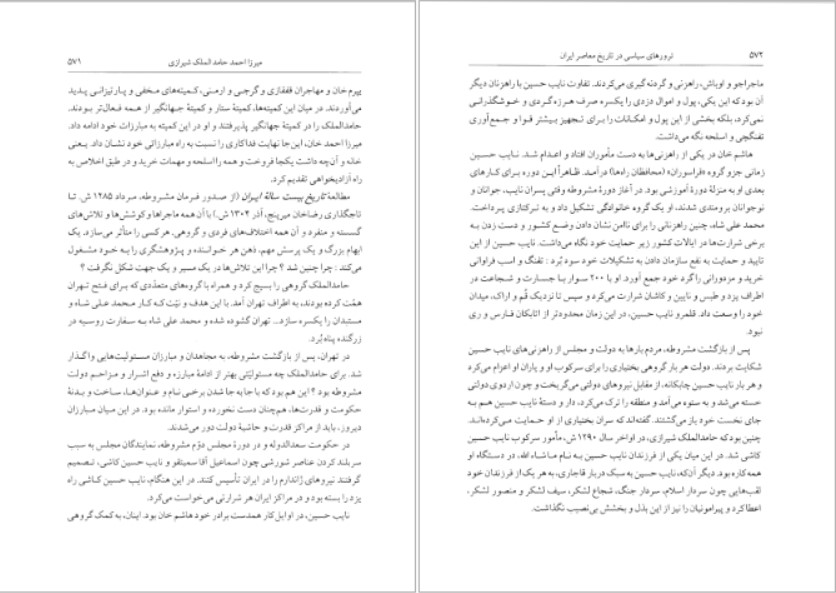 میرزا احمد حامدالملک شیرازی ۵۷۱
یپرم‌خان و مهاجران قفقازی و گرجی و ارمنی، کمیته‌های مخفی و پارتیزانی پدید
می‌آوردند. در میان این کمیته‌ها، کمیتهٔ ستار و کمیتهٔ جهانگیر از همه فعال‌تر بودند.
حامدالملک را در کمیتهٔ جهانگیر پذیرفتند و او در این کمیته به مبارزات خود ادامه داد.
میرزا احمد خان، این‌جا نهایت فداکاری را نسبت به راه مبارزاتی خود نشان داد. یعنی
خانه و آن‌چه داشت یکجا فروخت و همه را اسلحه و مهمات خرید و در طبق اخلاص به
راه آزادیخواهی تقدیم کرد.
مطالعهٔ تاریخ بیست سالهٔ ایران (از صدور فرمان مشروطه، مرداد ۱۲۸۵ ش. تا
تاجگذاری رضاخان میرپنج، آذر ۱۳۰۴ ش.) با آن همه ماجراها و کوشش‌ها و تلاش‌های
گسسته و منفرد و آن همه اختلاف‌های فردی و گروهی، هر کسی را متأثر می‌سازد. یک
ابهام بزرگ و یک پرسش مهم، ذهن هر خواننده و پژوهشگری را به خود مشغول
می‌کند: چرا چنین شد؟ چرا این تلاش‌ها در یک مسیر و یک جهت شکل نگرفت؟
حامدالملک گروهی را بسیج کرد و همراه با گروه‌های متعددی که برای فتح تهران
همّت کرده بودند، به اطراف تهران آمد. با این هدف و نیّت که کار محمد علی شاه و
مستبدان را یکسره سازد... تهران گشوده شد و محمد علی شاه به سفارت روسیه در
زرگنده پناه بُرد.
در تهران، پس از بازگشت مشروطه، به مجاهدان و مبارزان مسئولیت‌هایی واگذار
شد. برای حامدالملک چه مسئولیتی بهتر از ادامهٔ مبارزه و دفع اشرار و مزاحم دولت
مشروطه بود؟ این هم بود که با جا به جا شدن برخی نام و عنوان‌ها، ساخت و بدنهٔ
حکومت و قدرت‌ها، هم‌چنان دست نخورده و استوار مانده بود. در این میان مبارزان
دیروز، باید از مراکز قدرت و حاشیهٔ دولت دور می‌شدند.
در حکومت سعدالدوله و در دورهٔ مجلس دوّم مشروطه، نمایندگان مجلس به سبب
سر بلند کردن عناصر شورشی چون اسماعیل آقا سمیتقو و نایب حسین کاشی، تصمیم
گرفتند نیروهای ژاندارم را در ایران تأسیس کنند. در این هنگام، نایب حسین کاشی راه
یزد را بسته بود و در مراکز ایران هر شرارتی می‌خواست می‌کرد.
نایب حسین، در اوایل کار همدست برادر خود هاشم خان بود. اینان، به کمک گروهی
۵۷۲ ترورهای سیاسی در تاریخ معاصر ایران
ماجراجو و اوباش، راهزنی و گردنه‌گیری می‌کردند. تفاوت نایب حسین با راهزنان دیگر
آن بود که این یکی، پول و اموال دزدی را یکسره صرف هرزه‌گردی و خوشگذرانی
نمی‌کرد، بلکه بخشی از این پول و امکانات را برای تجهیز بیشتر قوا و جمع‌آوری
تفنگچی و اسلحه نگه می‌داشت.
هاشم خان در یکی از راهزنی‌ها به دست مأموران افتاد و اعدام شد. نایب حسین
زمانی جزو گروه «قراسوران» (محافظان راه‌ها) درآمد. ظاهراً این دوره برای کارهای
بعدی او به منزلهٔ دورهٔ آموزشی بود. در آغاز دورهٔ مشروطه وقتی پسران نایب، جوانان و
نوجوانان برومندی شدند، او یک گروه خانوادگی تشکیل داد و به ترکتازی پرداخت.
محمد علی شاه، چنین راهزنانی را برای ناامن نشان دادن وضع کشور و دست زدن به
برخی شرارت‌ها در ایالات کشور زیر حمایت خود نگاه می‌داشت. نایب حسین از این
تایید و حمایت به نفع سازمان دادن به تشکیلات خود سود بُرد: تفنگ و اسب فراوانی
خرید و مزدورانی را گرد خود جمع آورد. او با ۲۰۰ سوار با جسارت و شجاعت در
اطراف یزد و طبس و نایین و کاشان شرارت می‌کرد و سپس تا نزدیک قُم و اراک، میدان
خود را وسعت داد. قلمرو نایب حسین، در این زمان محدودتر از اتابکان فارس و ری
نبود.
پس از بازگشت مشروطه، مردم بارها به دولت و مجلس از راهزنی‌های نایب حسین
شکایت بردند. دولت هر بار گروهی بختیاری را برای سرکوب او و یاران او اعزام می‌کرد
و هر بار نایب حسین چابکانه، از مقابل نیروهای دولتی می‌گریخت و چون اردوی دولتی
خسته می‌شد و به ستوه می‌آمد و منطقه را ترک می‌کرد، دار و دستهٔ نایب حسین هم به
جای نخست خود باز می‌گشتند. گفته‌اند که سران بختیاری از او حمایت می‌کرده‌اند.
چنین بود که حامدالملک شیرازی، در اواخر سال ۱۲۹۰ ش، مأمور سرکوب نایب حسین
کاشی شد. در این میان یکی از فرزندان نایب حسین به نام ماشاءالله، در دستگاه او
همه‌کاره بود. دیگر آن‌که، نایب حسین به سبک دربار قاجاری، به هر یک از فرزندان خود
لقب‌هایی چون سردار اسلام، سردار جنگ، شجاع لشکر، سیف لشکر و منصور لشکر،
اعطا کرد و پیرامونیان را نیز از این بذل و بخشش بی‌نصیب نگذاشت.